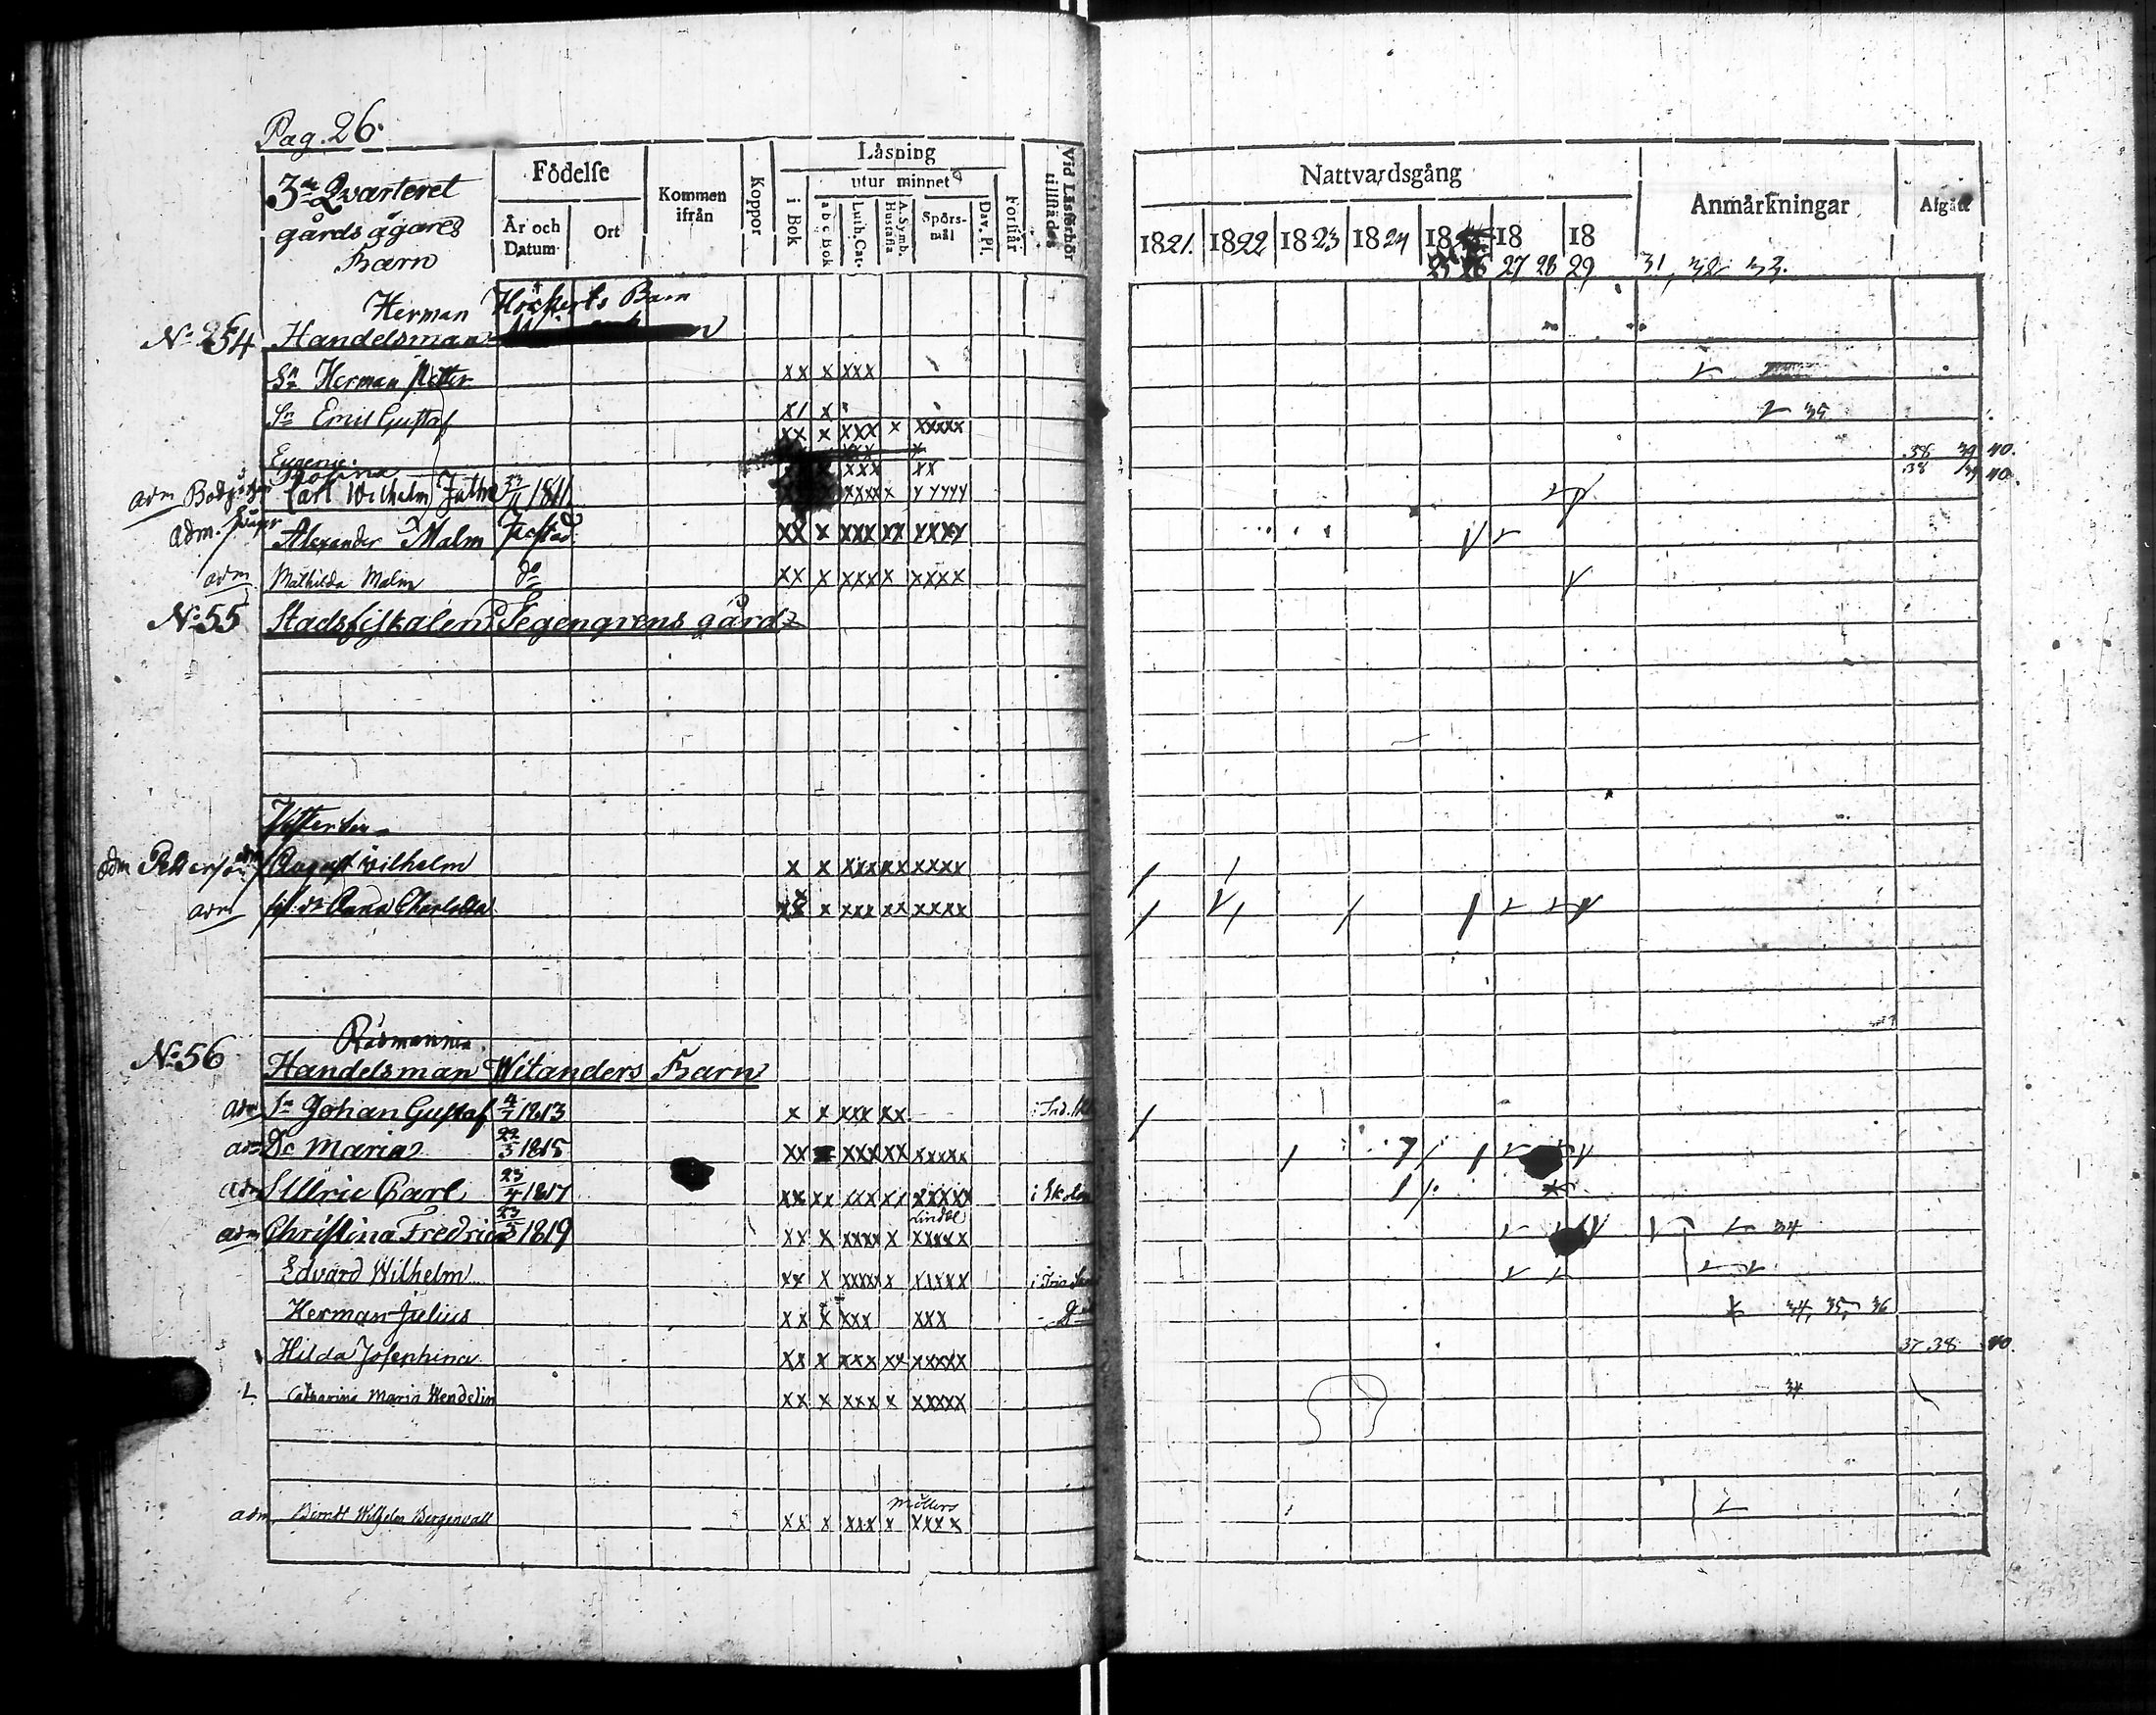 Pag. 26.
3de Qvarteret
gårds ägares
Barn
Födelse
År och Datum
Ort
Kommen ifrån
Koppor
Läsning
i Bok
utur minnet
a b c Bok
Luth. Cat.
A. Symb. Hustafla
Spörsmål
Dav. Ps.
Förstår
Vid Läsförhör tillstädes
Nattvardsgång
1821. 1822 1823 1824 18 18 18
25 26 27 28 29 31, 32 33.
Anmärkningar
Afgått
Herman Höckerts Barn
No 54 Handelsman
Sn Herman Petter xx x xxx
Sn Emil Gustaf x1 x 35
xx x xxx x xxxxx
Eugenie xxx x 38 39 40.
xxx xx 38 39 40.
adm Carl Wilhelm 1811 xxxxx xxxxx
adm. Alexander Malm xx x xxx xx xxxx
adm Mathilda Malm do xx x xxx x xxxx
No 55 Stadsfiskalen Tegengrens gård
adm August Wilhelm x x xxx xx xxxx
adm Anna Charlotta x x xxx xx xxxx
Rådmannen
No 56 Handelsman Witanders Barn
adm Sn Johan Gustaf 4/7 1813 x x xxx xx
adm Dr Maria 22/3 1815 xx xxx xx xxxxx
adm S Ulric Carl 23/4 1817 xx xx xxx xx xxxxx i Skolan
Lindbl
adm Christina Fredrica 23/5 1819 xx x xxxx x xxxxx 34
Edvard Wilhelm xx x xxxxx x xxxxx
Herman Julius xx x xxx xxx 34, 35, 36
Hilda Josephina xx x xxx xx xxxxx 37 38 40.
L Catharina Maria Wendelin xx x xxx x xxxxx 34
Möllers
adm Berndt Wilhelm Bergenvall xx x xxx x xxxx